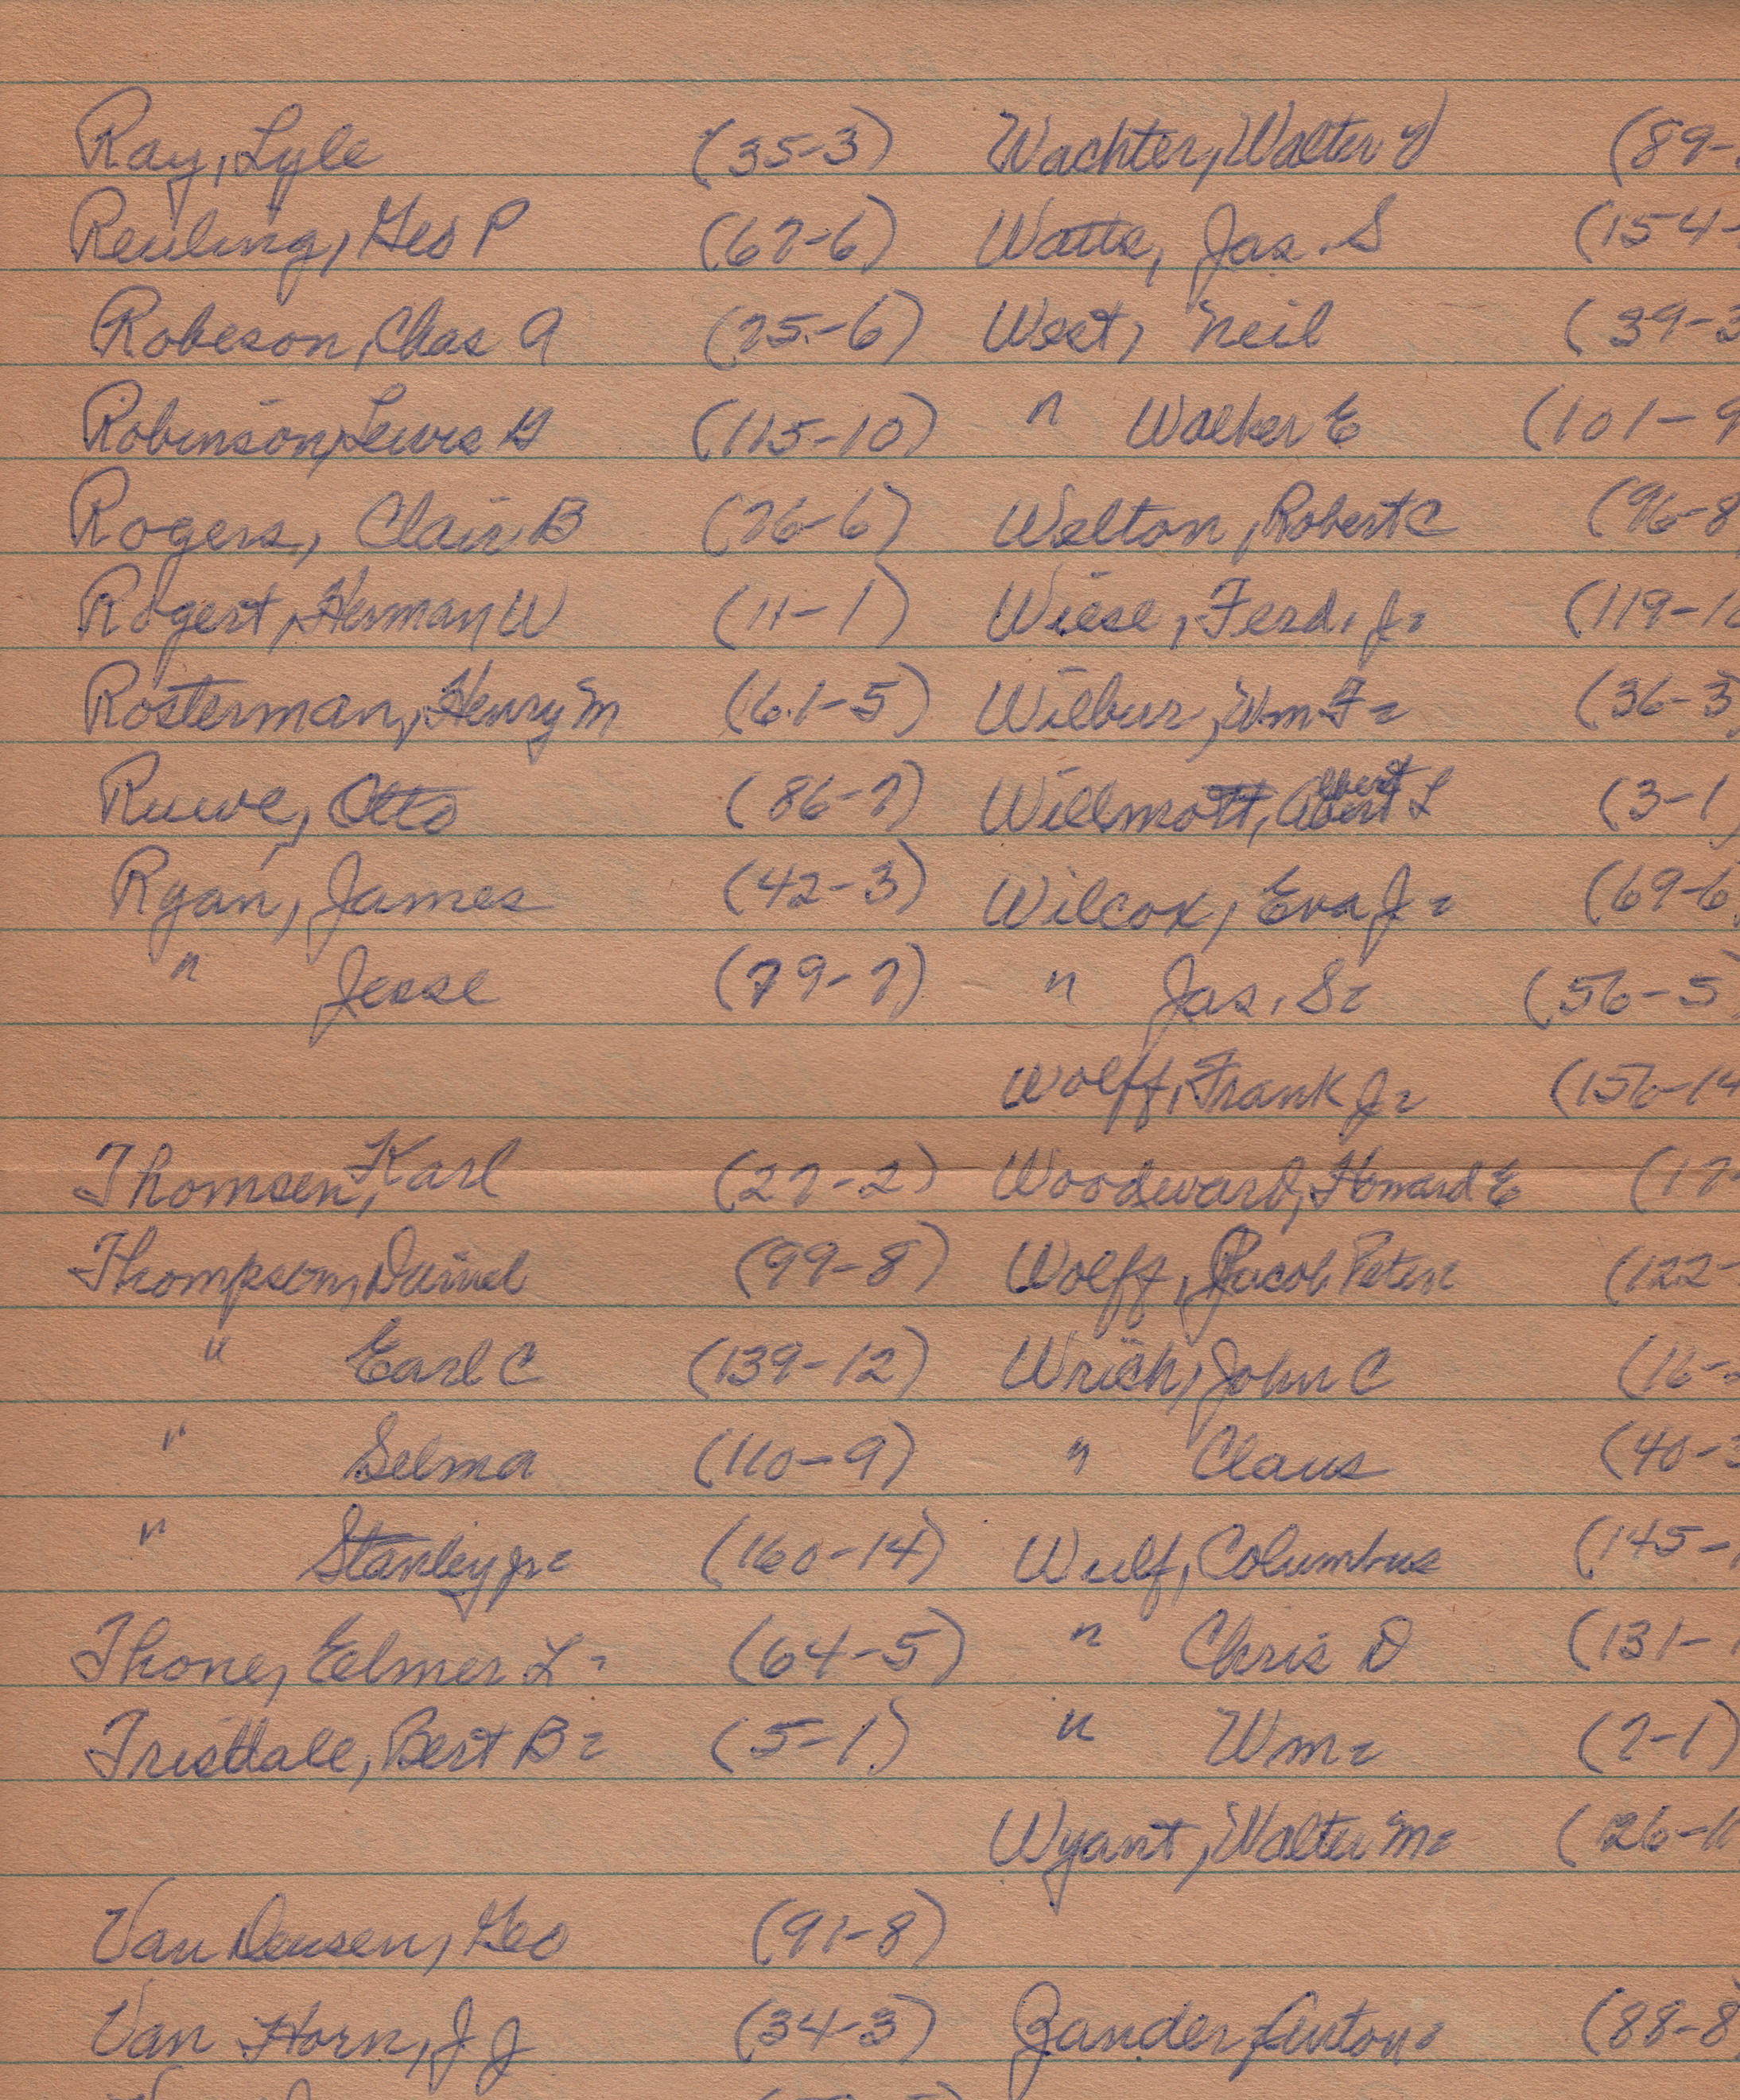 Ray, Lyle (35-3)
Reuling, Geo P (67-6)
Robeson, Chas A (75-6)
Robinson, Lewis H (115-10)
Rogers, Clair B (76-6)
Rogert, Herman W (11-1)
Rosterman, Henry M (61-5)
Ruwe, Otto (86-7)
Ryan, James (42-3)
" Jesse (79-7)
Thomsen, Karl (27-2)
Thompson, Daniel (99-8)
" Earl C (139-12)
" Selma (110-9)
" Stanley Jr. (160-14)
Thone, Elmer L. (64-5)
Trisdale, Bert B. (5-1)
Van Deusen, Geo (91-8)
Van Horn, J J (34-3)
Wachter, Walter (89-
Watts, Jas. S (154-
West, Neil (39-3
" Walker E (101-9
Welton, Robert C (96-8
Wiese, Ferd. Jr. (119-10
Wilbur, Wm F. (36-3)
Willmott, Albert L (3-1)
Wilcox, Eva J. (69-6
" Jas. S. (56-5)
Wolff, Frank Jr. (156-14
Woodward, Howard E (17-
Wolff, Jacob Peter (122-
Wrich, John C (16-2
" Claus (40-3
Wulf, Columbus (145-1
" Chris D (131-1
" Wm. (7-1)
Wyant, Walter M. (126-11
Zander, Anton. (88-8)